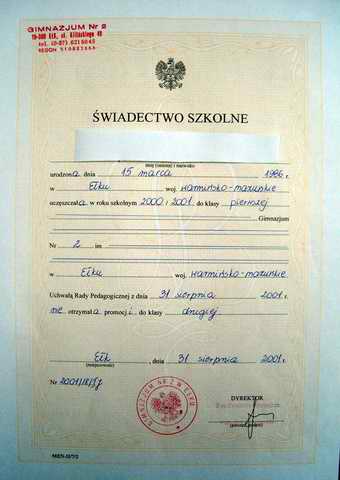 GIMNAZJUM Nr 2
19-300 Ełk, ul. Kilińskiego 48
tel. (0-87)
REGON
ŚWIADECTWO SZKOLNE
imię (imiona) i nazwisko
urodzona dnia 15 marca 1986 r.
w Ełku woj. warmińsko-mazurskie
uczęszczała w roku szkolnym 2000/2001 do klasy pierwszej
Gimnazjum
Nr 2 im
w Ełku woj. warmińsko-mazurskie
Uchwałą Rady Pedagogicznej z dnia 31 sierpnia 2001 r.
nie otrzymała promocji do klasy drugiej
Ełk, dnia 31 sierpnia 2001 r.
(miejscowość)
Nr
GIMNAZJUM NR 2 W EŁKU
DYREKTOR
MEN-II/7/2